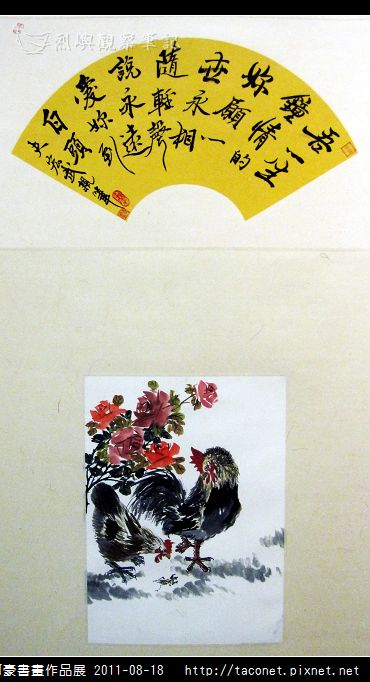 烈嶼觀察筆記
吾一生
鐘情的
妳願一
世永相
隨輕聲
說永遠
愛妳到
白頭
夫宏武親筆
豪書畫作品展 2011-08-18 http://taconet.pixnet.net